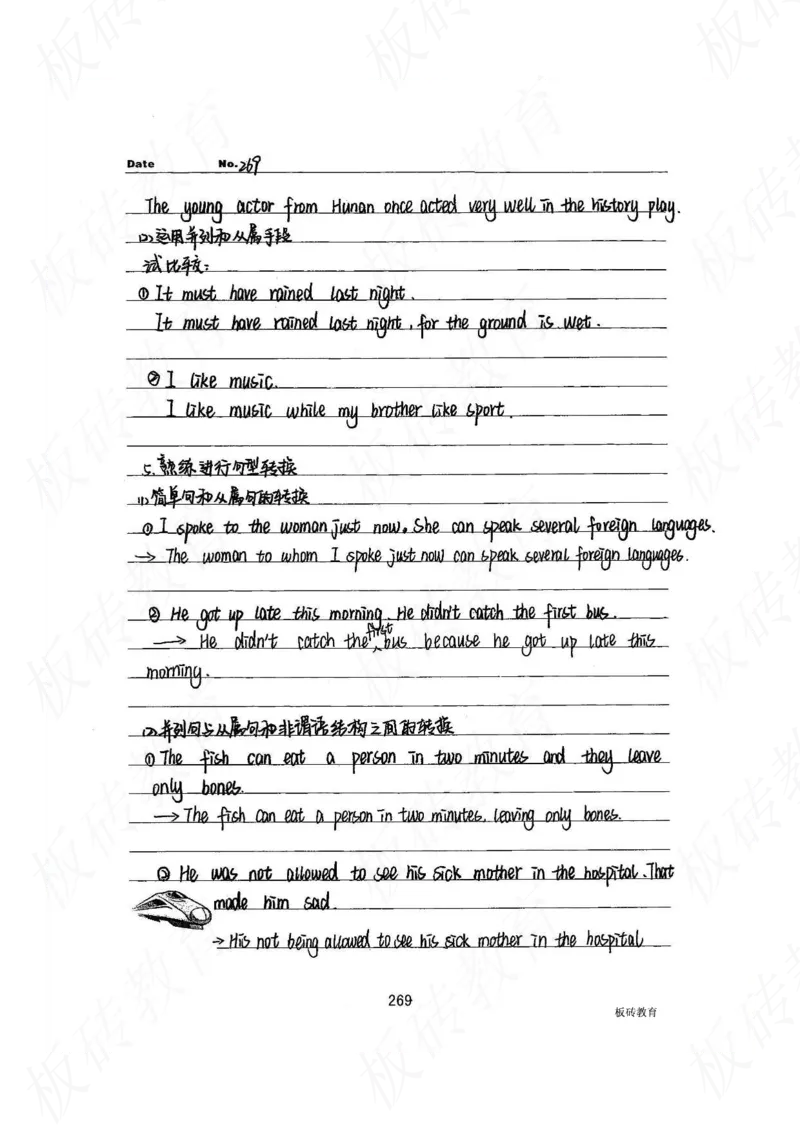 Date No.269
The young actor from Hunan once acted very well in the history play.
(2)运用并列和从属手段
试比较:
① It must have rained last night.
It must have rained last night, for the ground is wet.
② I like music.
I like music while my brother like sport.
5.熟练进行句型转换
(1)简单句和从属句的转换
① I spoke to the woman just now. She can speak several foreign languages.
→ The woman to whom I spoke just now can speak several foreign languages.
② He got up late this morning. He didn't catch the first bus.
→ He didn't catch the first bus because he got up late this
morning.
(2)并列句与从属句和非谓语结构之间的转换
① The fish can eat a person in two minutes and they leave
only bones.
→ The fish can eat a person in two minutes, leaving only bones.
② He was not allowed to see his sick mother in the hospital. That
made him sad.
→ His not being allowed to see his sick mother in the hospital
269
板砖教育